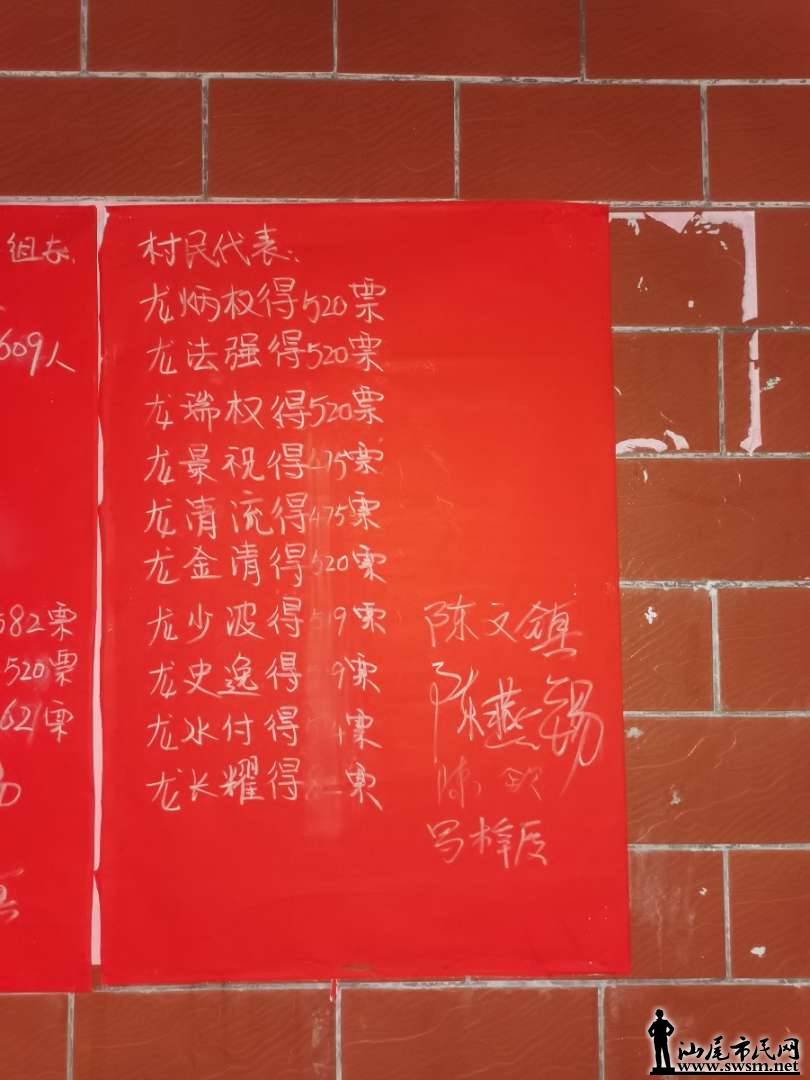 组长
609人
582票
520票
621票
村民代表:
龙炳权得520票
龙法强得520票
龙瑞权得520票
龙景祝得475票
龙清流得475票
龙金清得520票
龙少波得519票
龙史逸得 9票
龙水付得 票
龙长耀得 票
陈文镇
陈燕锡
陈
马梓辰
汕尾市民网
www.swsm.net